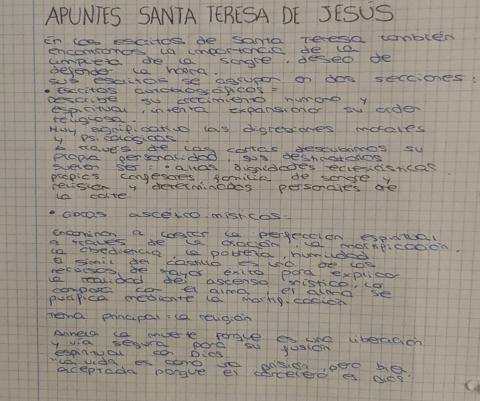 APUNTES SANTA TERESA DE JESÚS
En los escritos de Santa Teresa también
encontramos la importancia de la
limpieza de la sangre, deseo de
defender la honra.
Sus escritos se agrupan en dos secciones:
• Escritos autobiográficos =
Describe su crecimiento humano y
espiritual, intenta expansionar su orden
religiosa.
Muy significativo las digresiones morales
y psicológicas
A través de las cartas descubrimos su
propia personalidad, sus destinatarios
suelen ser: altas dignidades eclesiásticas
propios confesores, familia de sangre y
religión y determinados personajes de
la corte
• Obras ascético místicas.
Encaminan a lograr la perfección espiritual
a través de la oración, la mortificación,
la obediencia, la pobreza, humildad
El símil del castillo es uno de los
recursos de mayor éxito para explicar
la realidad del ascenso místico, lo
compara con el alma, el alma se
purifica mediante la mortificación
Tema principal: la religión
Anhela la muerte porque es una liberación
y vía segura para su fusión
espiritual con Dios
"La vida es como una prisión pero bien
aceptada porque el carcelero es Dios.